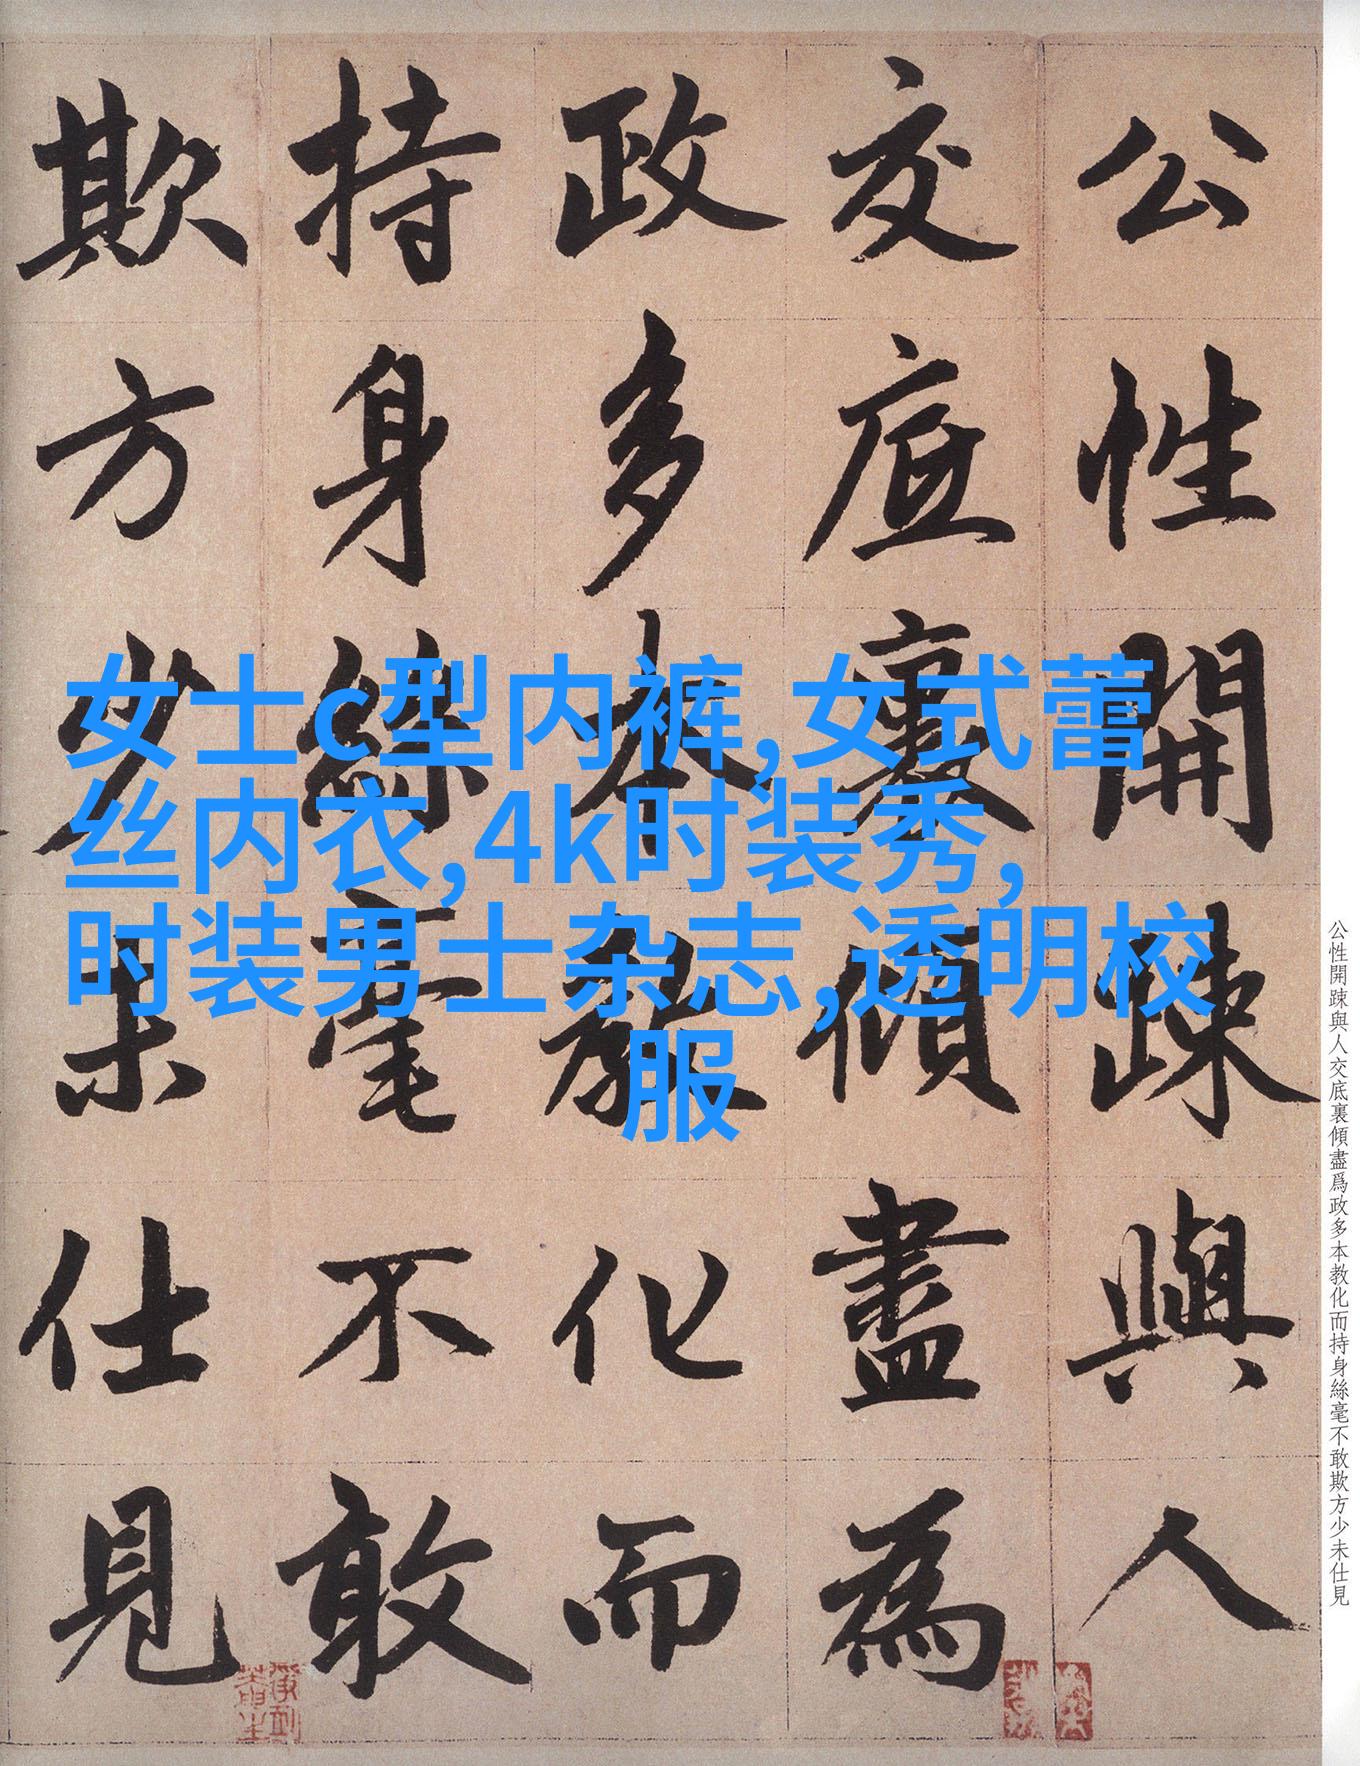 公性開踈與人
交底裏傾盡為
政多本教化而
持身絲毫不敢
欺方少未仕見
女士c型内裤,女式蕾
丝内衣,4k时装秀,
时装男士杂志,透明校
服
公性開踈與人交底裏傾盡爲政多本教化而持身絲毫不敢欺方少未仕見